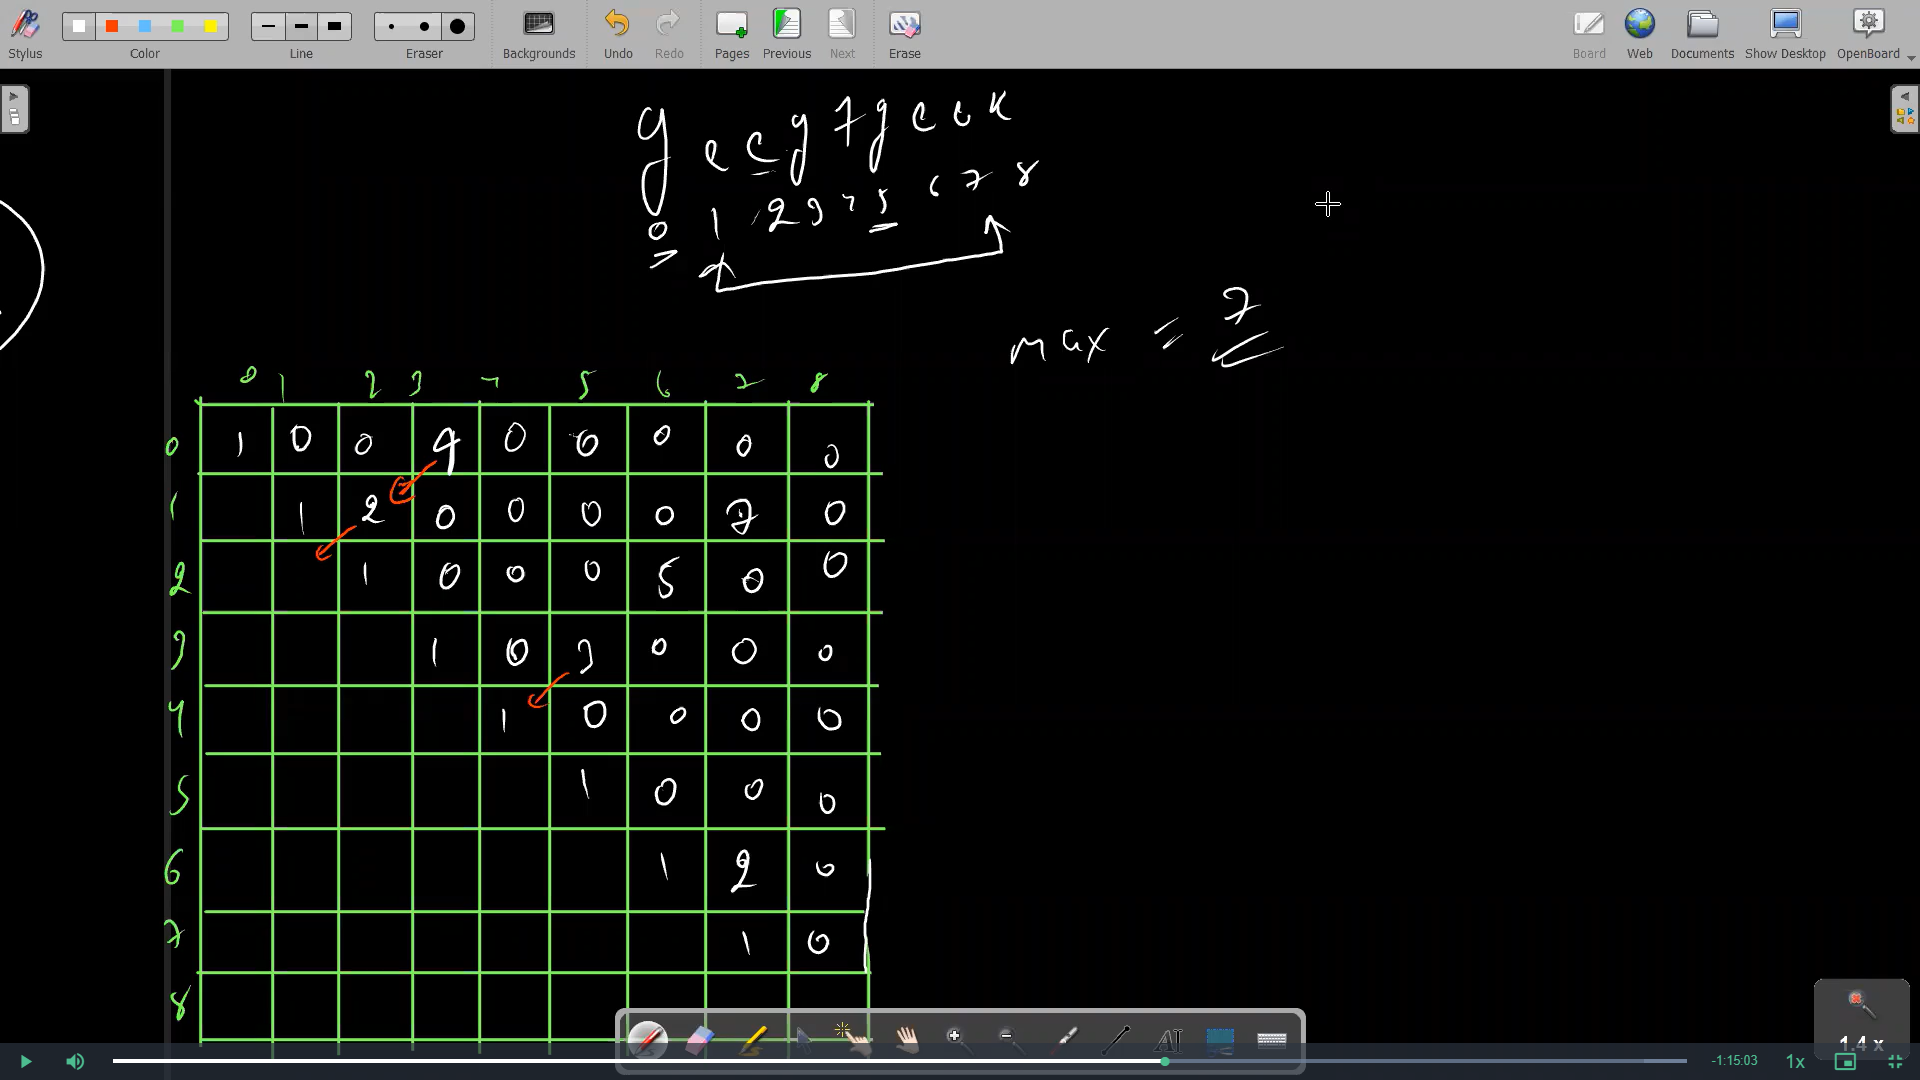 Stylus Color Line Eraser Backgrounds Undo Redo Pages Previous Next Erase Board Web Documents Show Desktop OpenBoard
g e e g 7 g e e k
0 1 2 3 4 5 6 7 8
max = 7
0 1 2 3 4 5 6 7 8
0 1 0 0 4 0 0 0 0 0
1 1 2 0 0 0 0 7 0
2 1 0 0 0 5 0 0
3 1 0 3 0 0 0
4 1 0 0 0 0
5 1 0 0 0
6 1 2 0
7 1 0
8
1.4 x
-1:15:03 1x